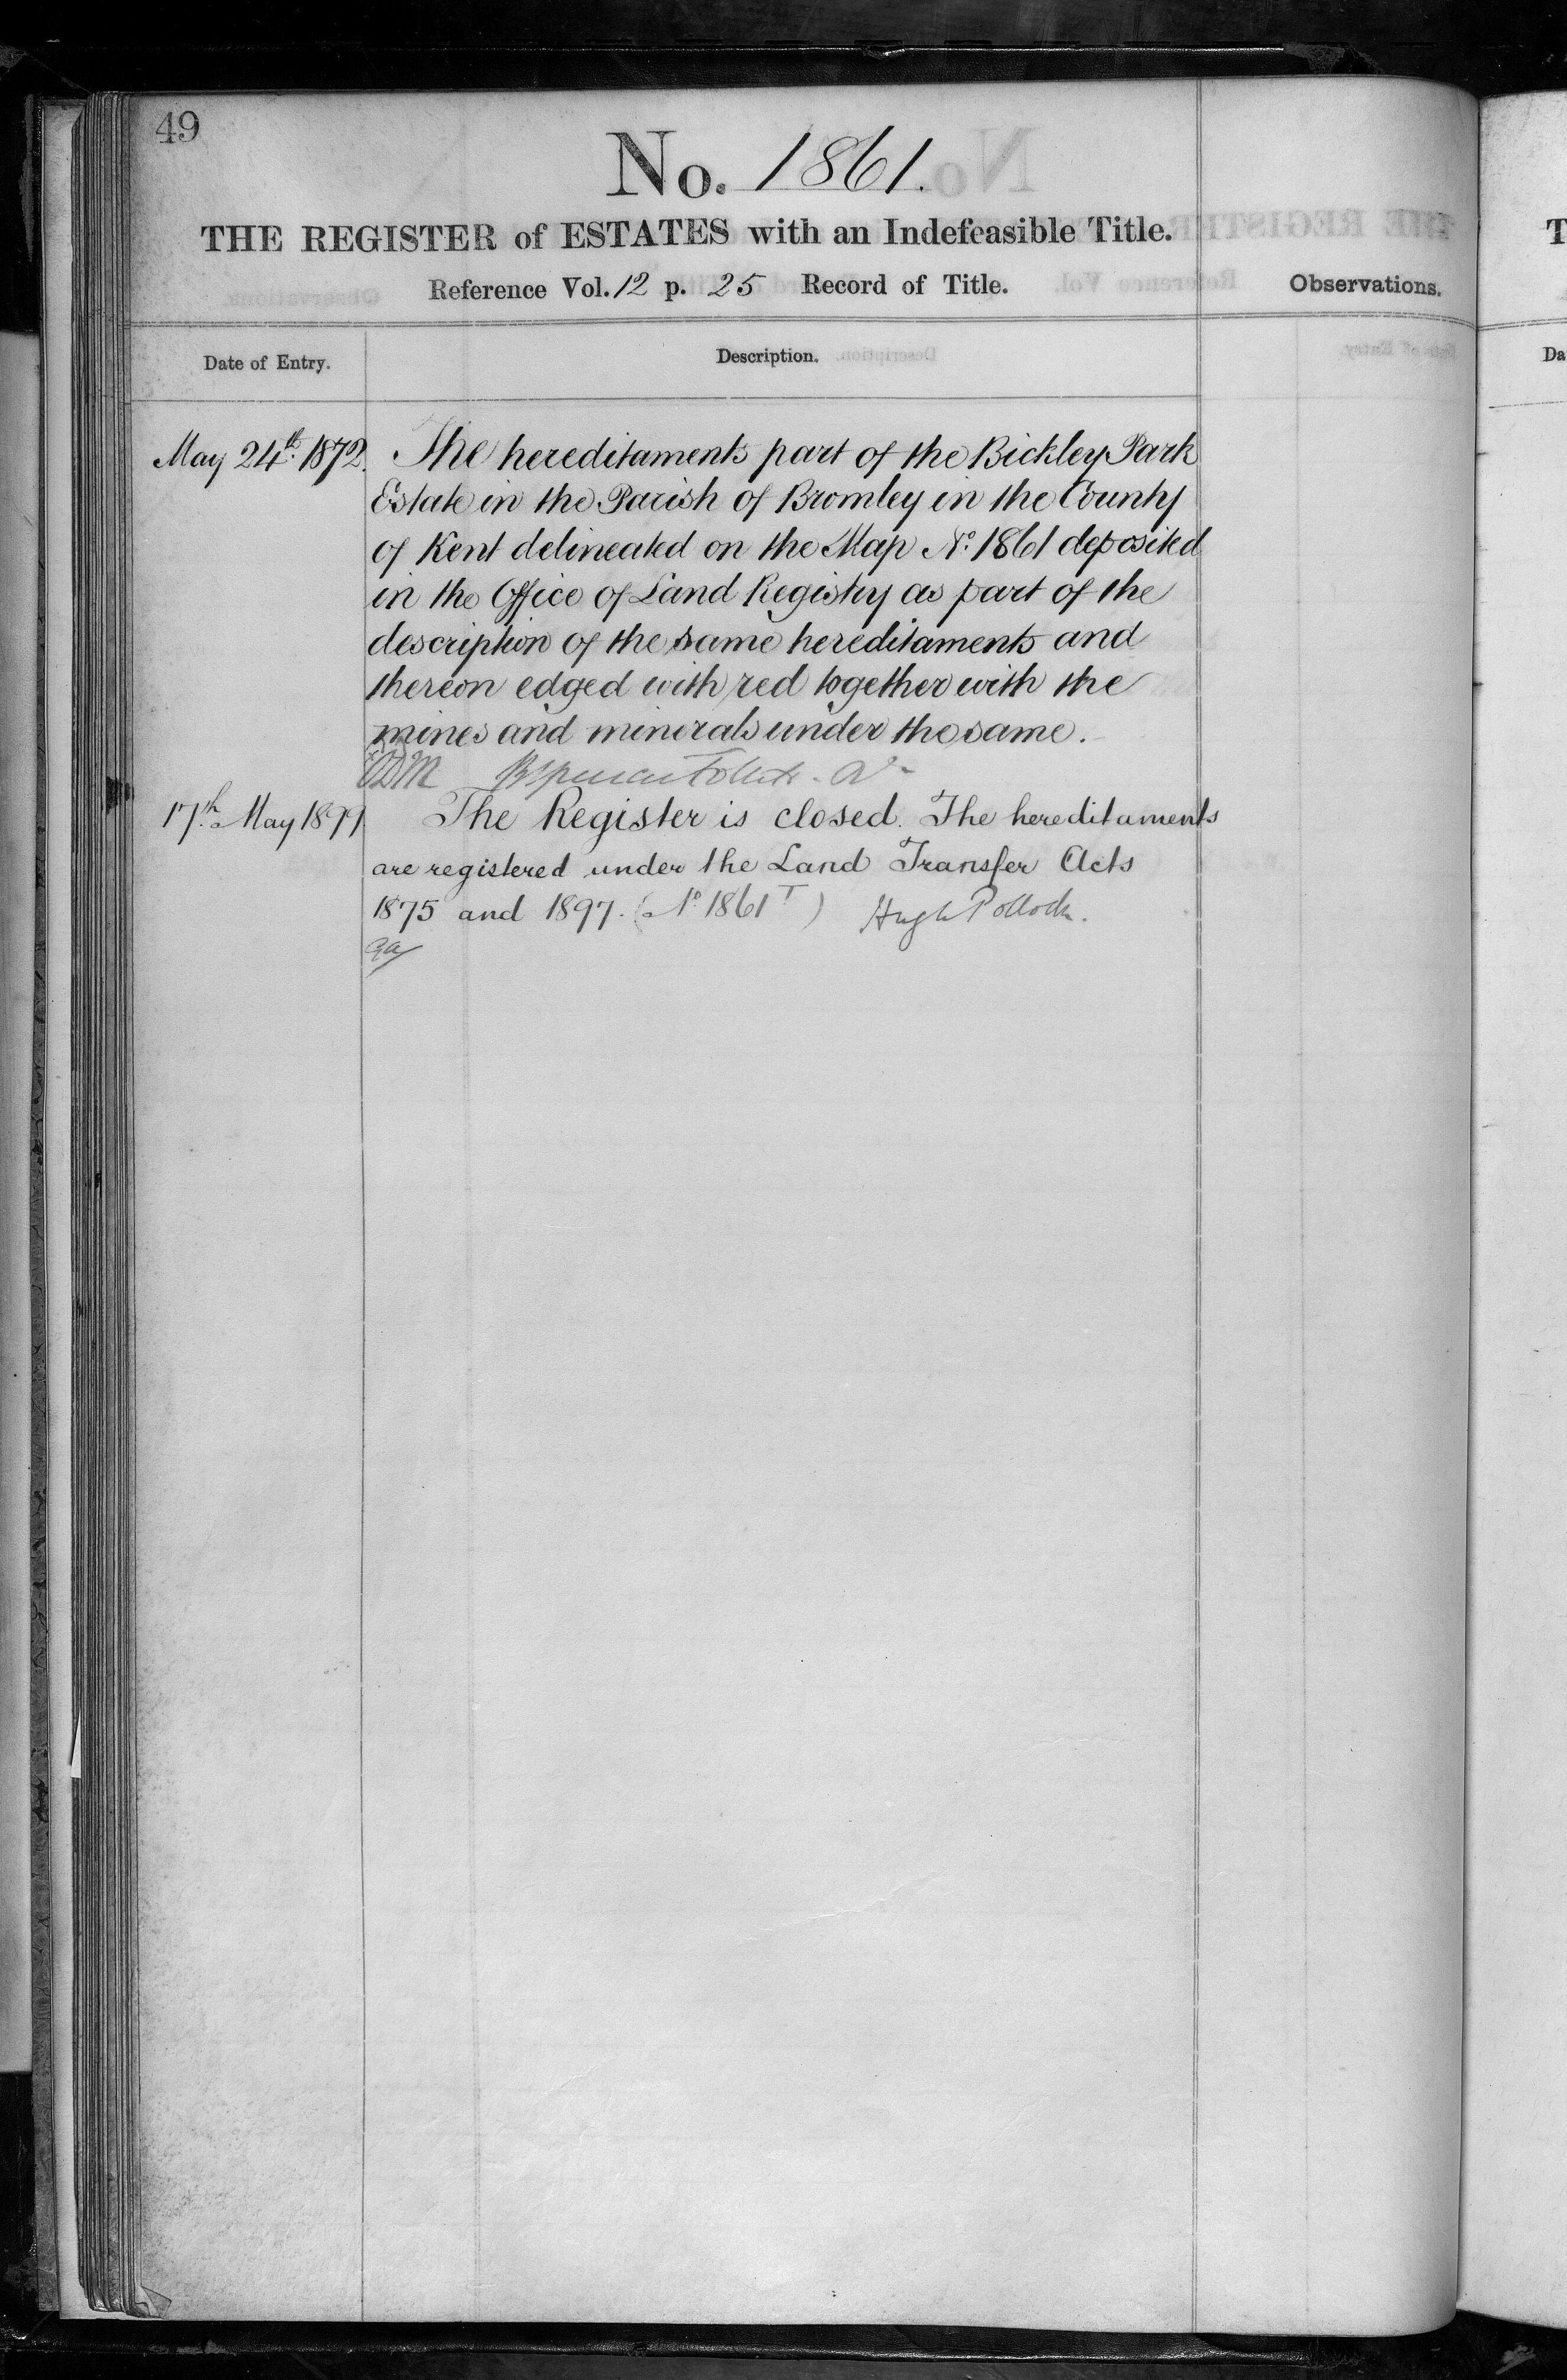 49
No. 1861.
THE REGISTER of ESTATES with an Indefeasible Title.
Reference Vol. 12 p. 25 Record of Title.
Observations.
Date of Entry.
Description.
May 24th. 1872. The hereditaments part of the Bickley Park
Estate in the Parish of Bromley in the County
of Kent delineated on the Map No. 1861 deposited
in the Office of Land Registry as part of the
description of the same hereditaments and
thereon edged with red together with the
mines and minerals under the same.
17th. May 1899 The Register is closed. The hereditaments
are registered under the Land Transfer Acts
1875 and 1897. (No. 1861 T) Hugh Pollock.
T
Da